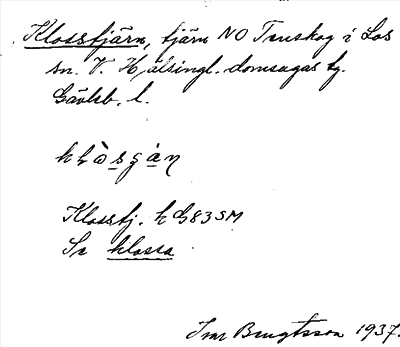 Klossfjärn, tjärn NO Tenskog i Los
sn. V. Hälsingl. domsagas tg.
Gävleb. l.
Klossfj. k G83SM
Se klossa
Ivar Bengtsson 1937.